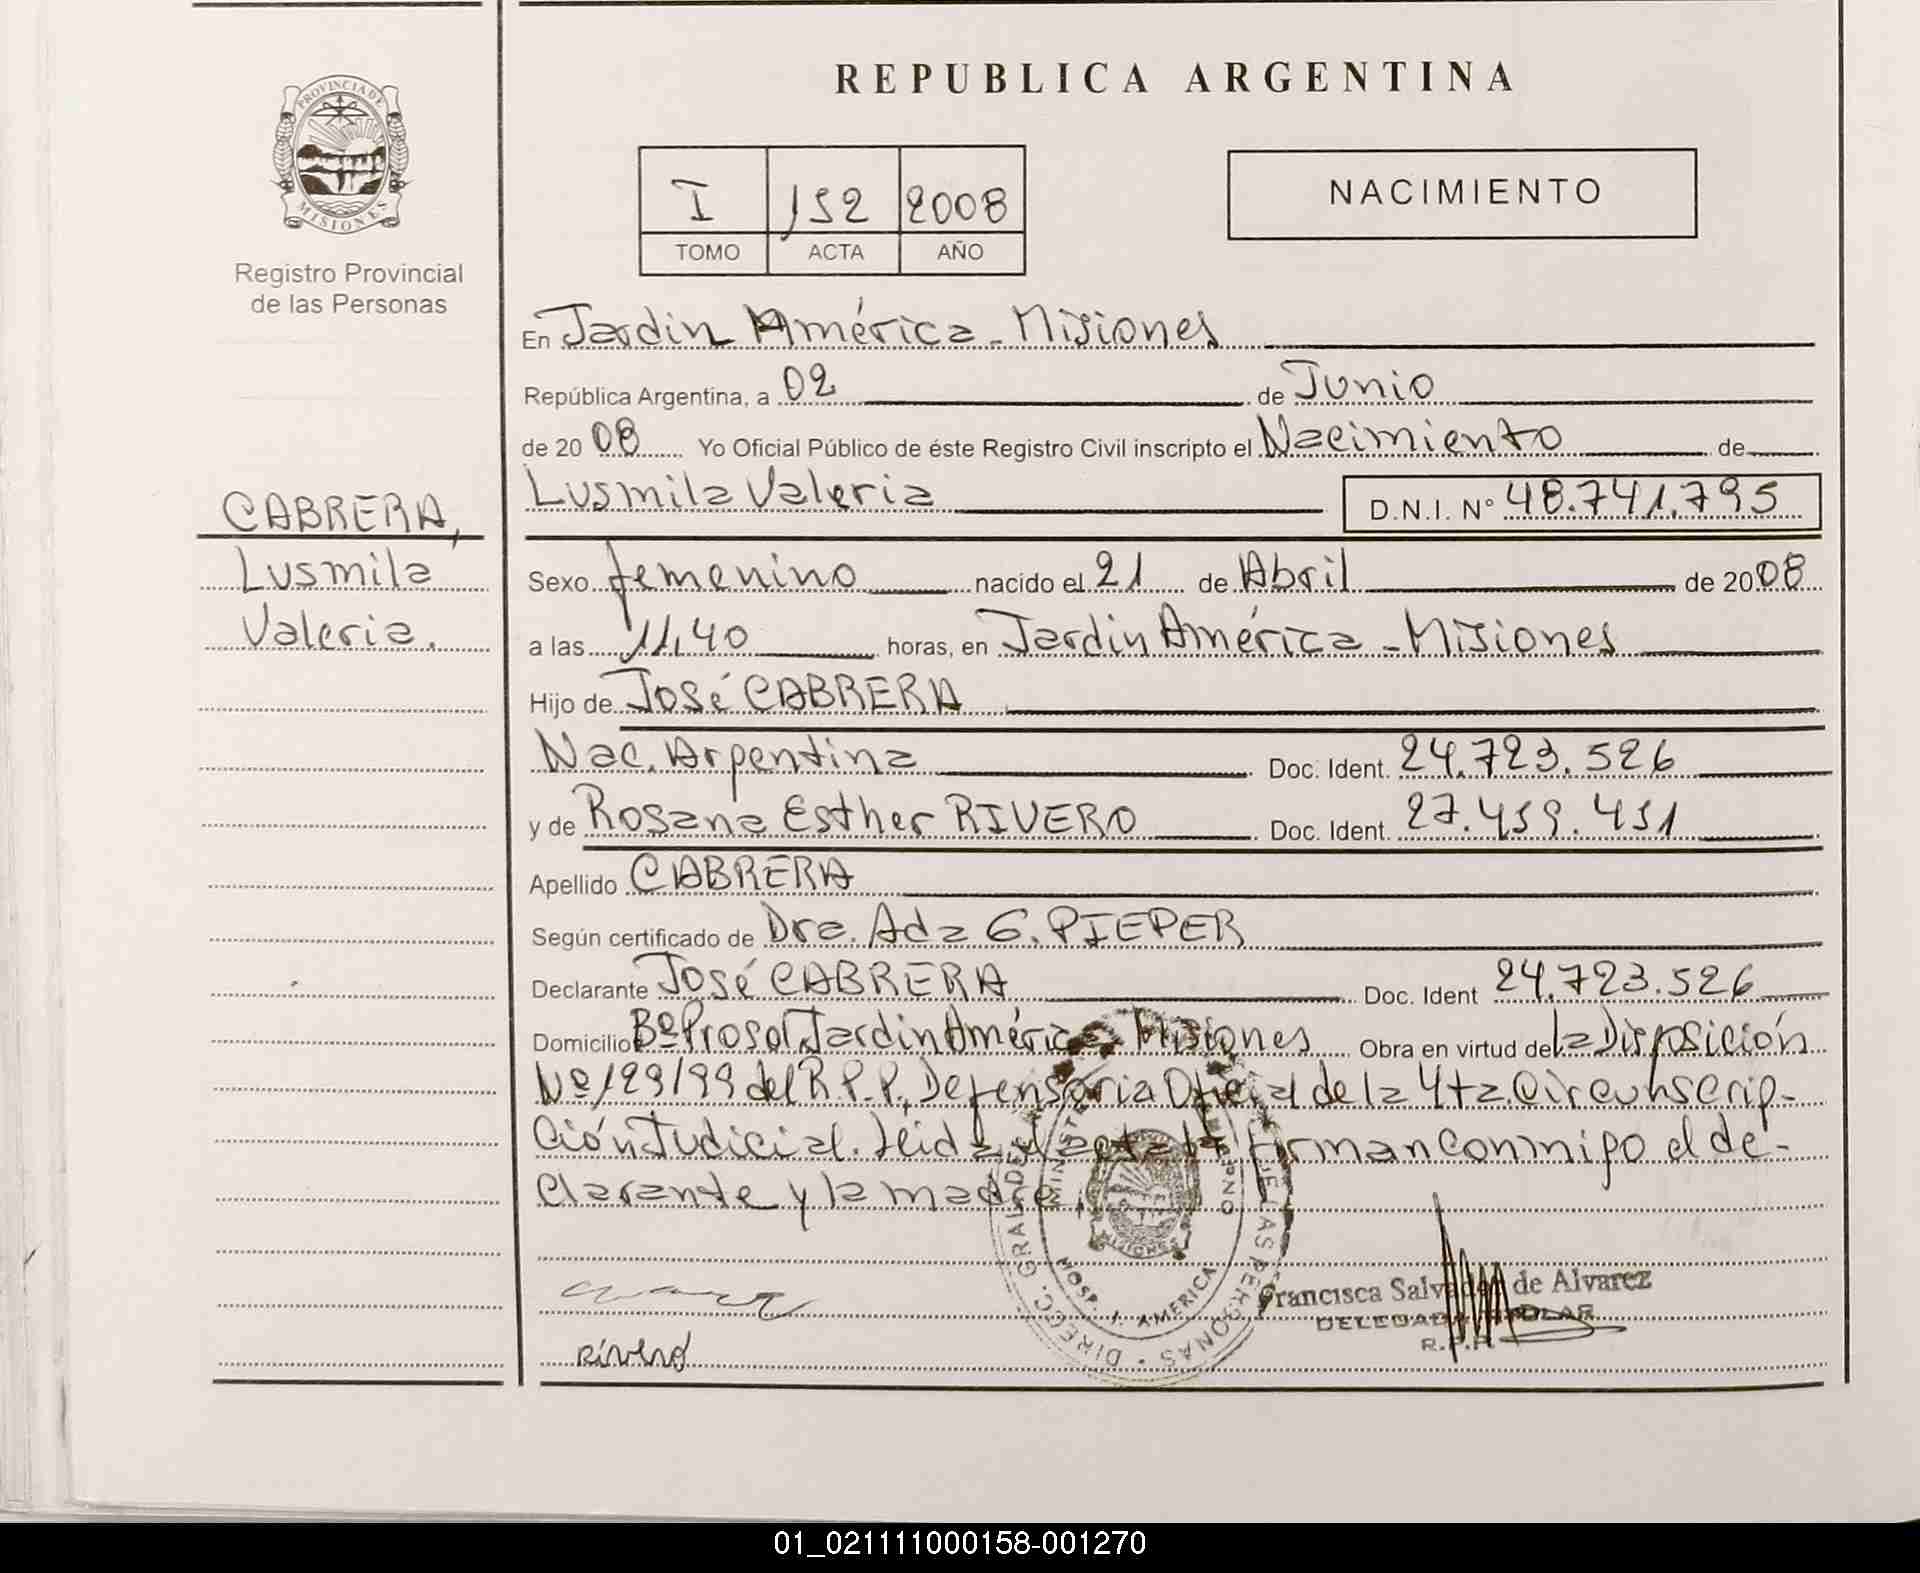 PROVINCIA DE
MISIONES
Registro Provincial
de las Personas
CABRERA,
Lusmila
Valeria.
REPUBLICA ARGENTINA
I 152 2008
TOMO ACTA AÑO
NACIMIENTO
En Jardin América - Misiones
República Argentina, a 02 de Junio
de 20 08 Yo Oficial Público de éste Registro Civil inscripto el Nacimiento de
Lusmila Valeria D.N.I. Nº 48.741.795
Sexo femenino nacido el 21 de Abril de 2008
a las 11,40 horas, en Jardin América - Misiones
Hijo de José CABRERA
Nac. Argentina Doc. Ident. 24.723.526
y de Rosana Esther RIVERO Doc. Ident. 27.459.451
Apellido CABRERA
Según certificado de Dra. Ada G. PIEPER
Declarante José CABRERA Doc. Ident 24.723.526
Domicilio Bº Prosol, Jardin América Misiones Obra en virtud de la Disposición
Nº 129/99 del R.P.P., Defensoria Oficial de la 4ta. Circunscrip-
ción Judicial. Leida el acta la firman conmigo el de-
clarante y la madre.
DIRECC. GRAL. DE LAS PERSONAS
HOSP. J. AMERICA
MISIONES
Francisca Salvador de Alvarez
DELEGADA TITULAR
R.P.P.
Rivero
01_021111000158-001270